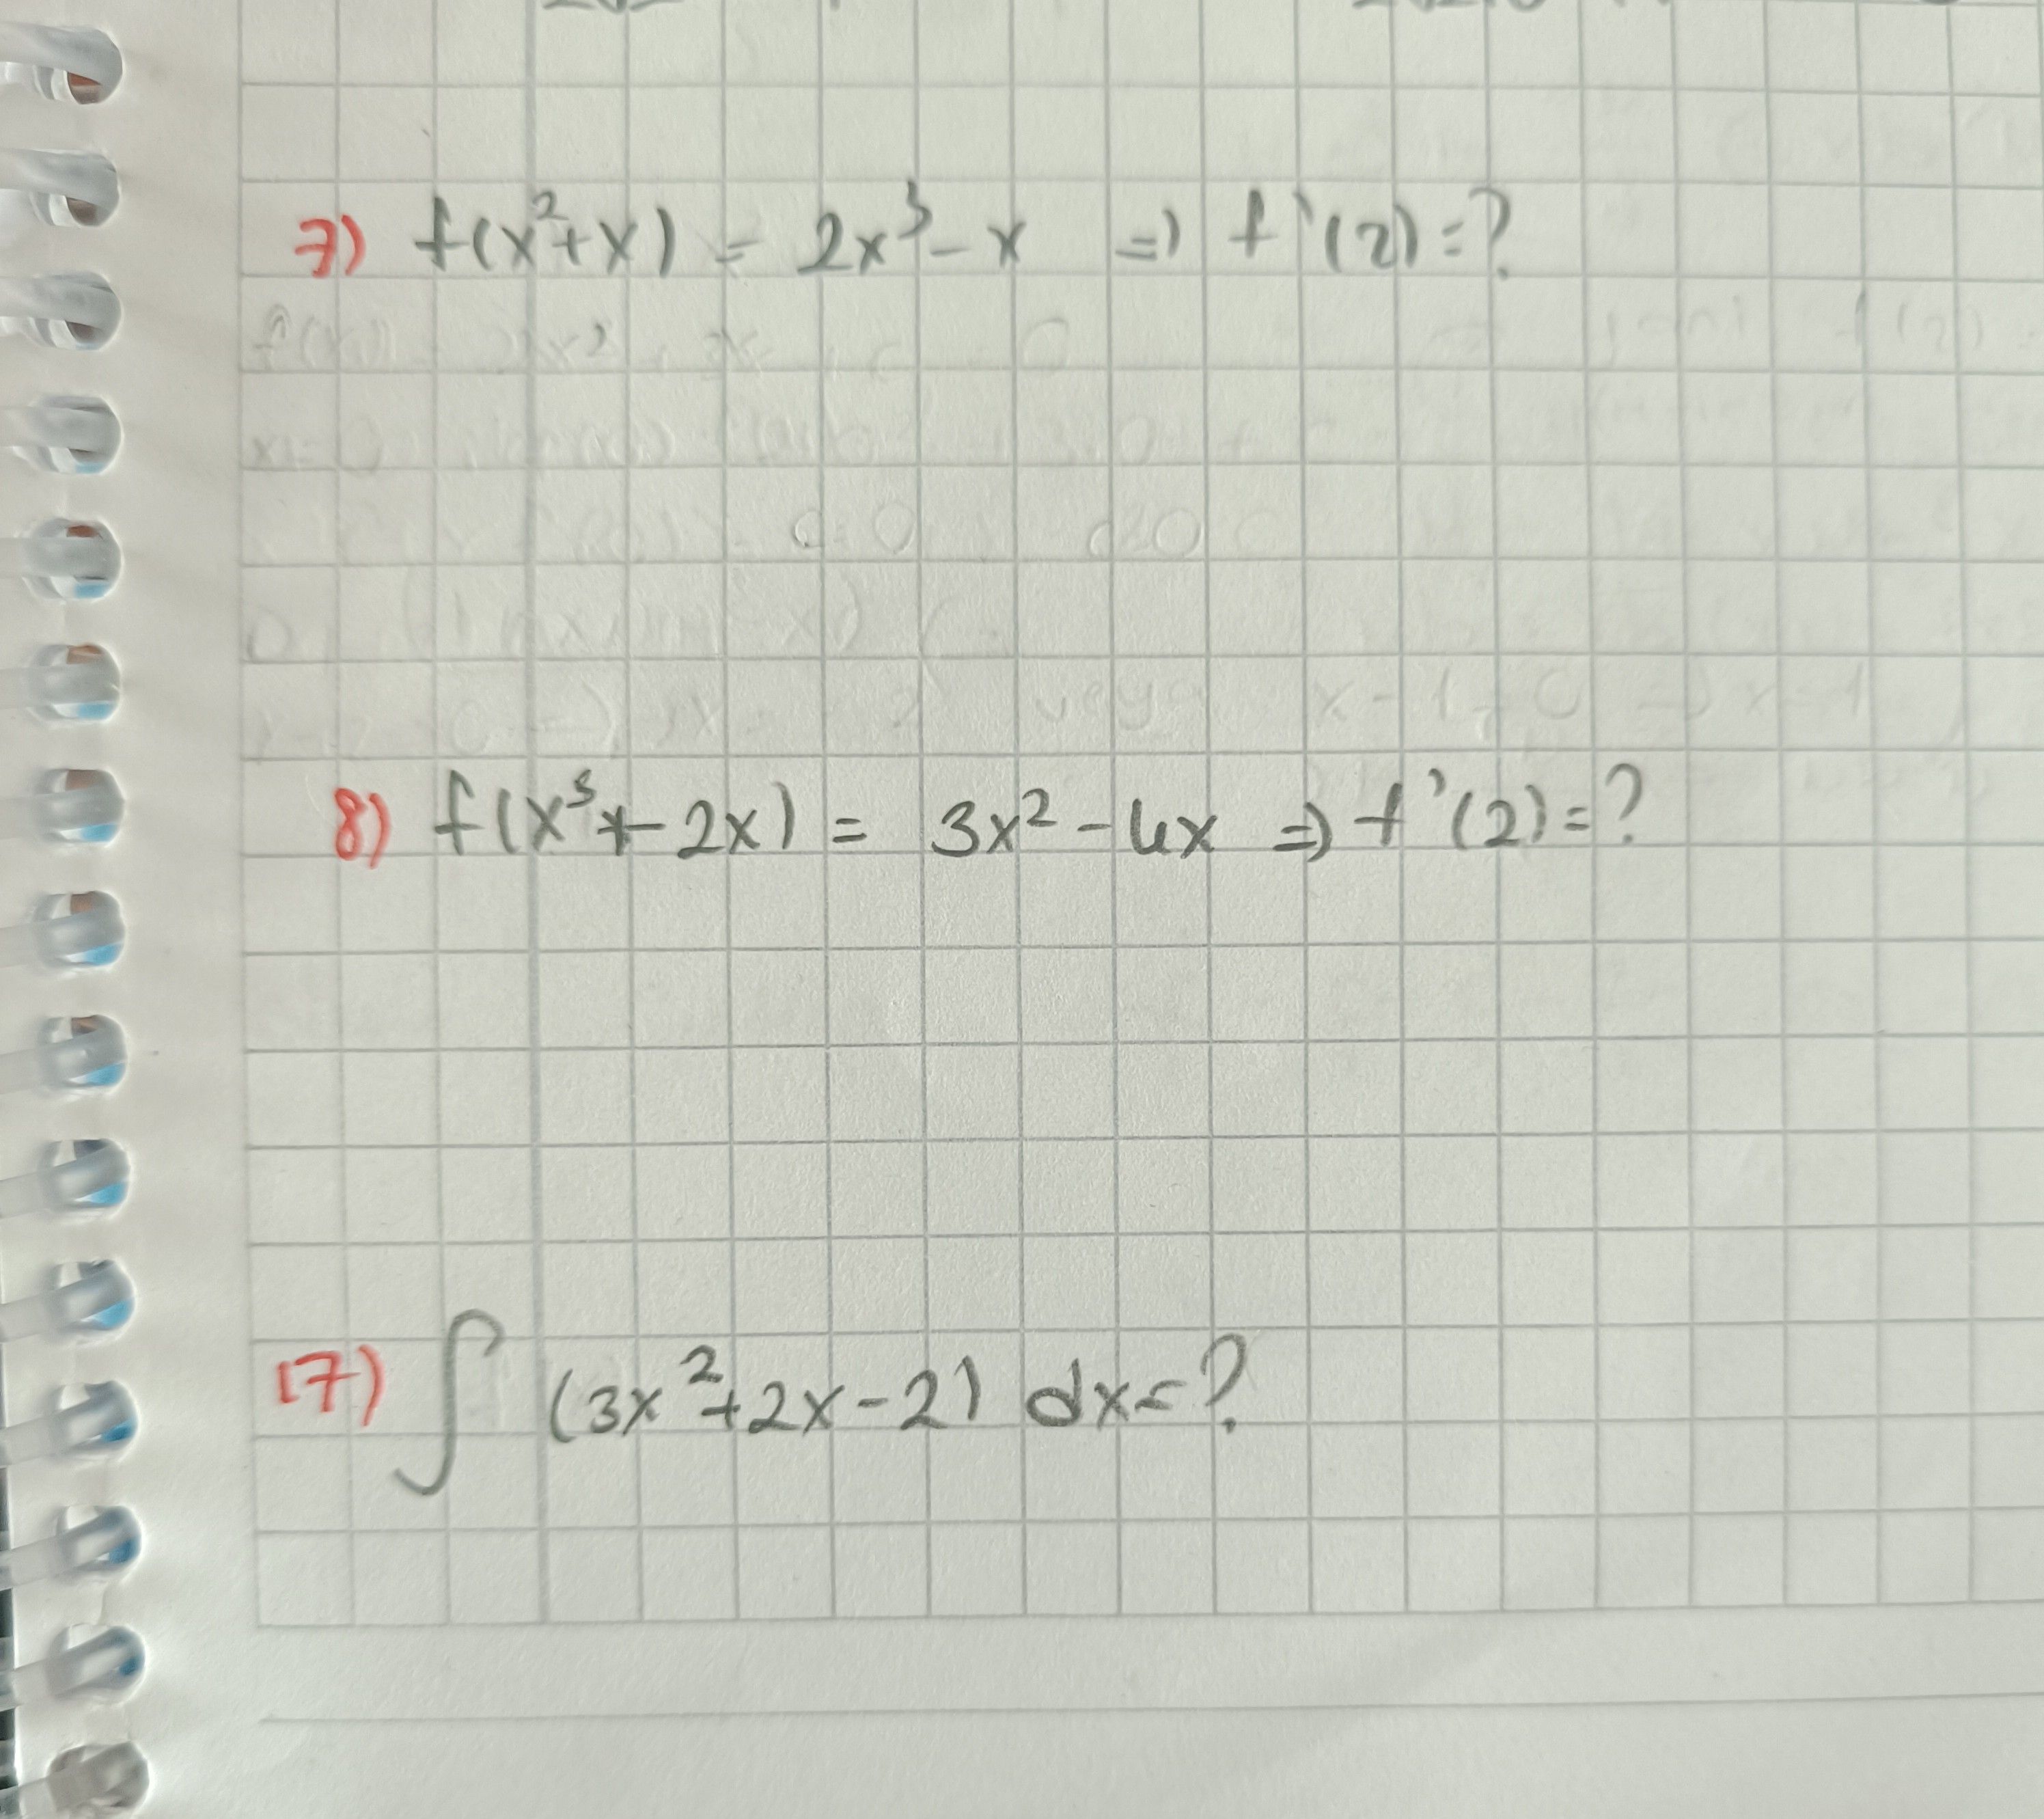 7) f(x²+x) = 2x³-x => f'(2)=?
8) f(x³+2x) = 3x²-4x => f'(2)=?
17) ∫ (3x²+2x-2) dx=?